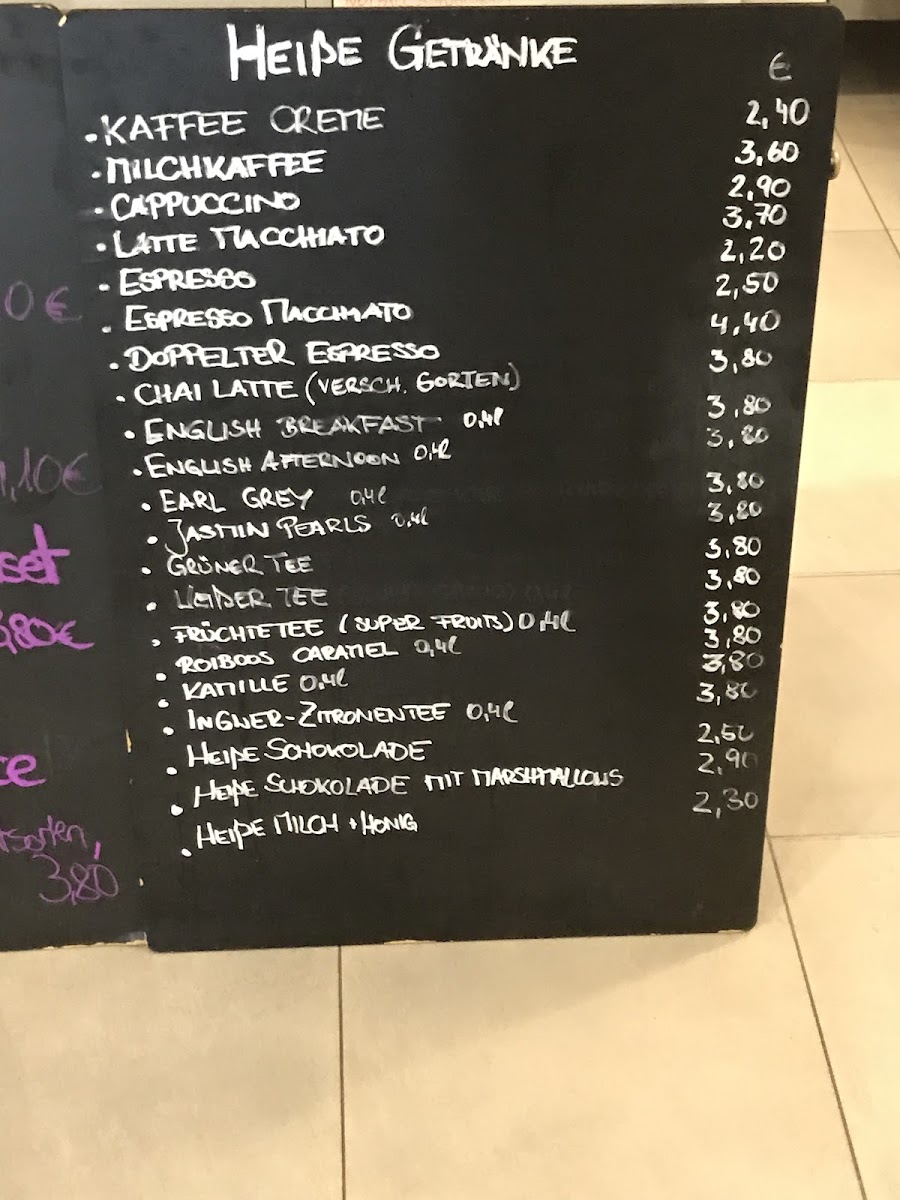 Heiße Getränke
€
• Kaffee Creme 2,40
• Milchkaffee 3,60
• Cappuccino 2,90
• Latte Macchiato 3,70
• Espresso 2,20
• Espresso Macchiato 2,50
• Doppelter Espresso 4,40
• Chai Latte (versch. Sorten) 3,80
• English Breakfast 0,4l 3,80
• English Afternoon 0,4l 3,80
• Earl Grey 0,4l 3,80
• Jasmin Pearls 0,4l 3,80
• Grüner Tee 3,80
• Weißer Tee 3,80
• Früchtetee (Super Fruits) 0,4l 3,80
• Roiboos Caramel 0,4l 3,80
• Kamille 0,4l 3,80
• Ingwer-Zitronentee 0,4l 3,80
• Heiße Schokolade 2,50
• Heiße Schokolade mit Marshmallows 2,90
• Heiße Milch + Honig 2,30
0€
1,10€
set
3,80€
ce
sorten,
3,80